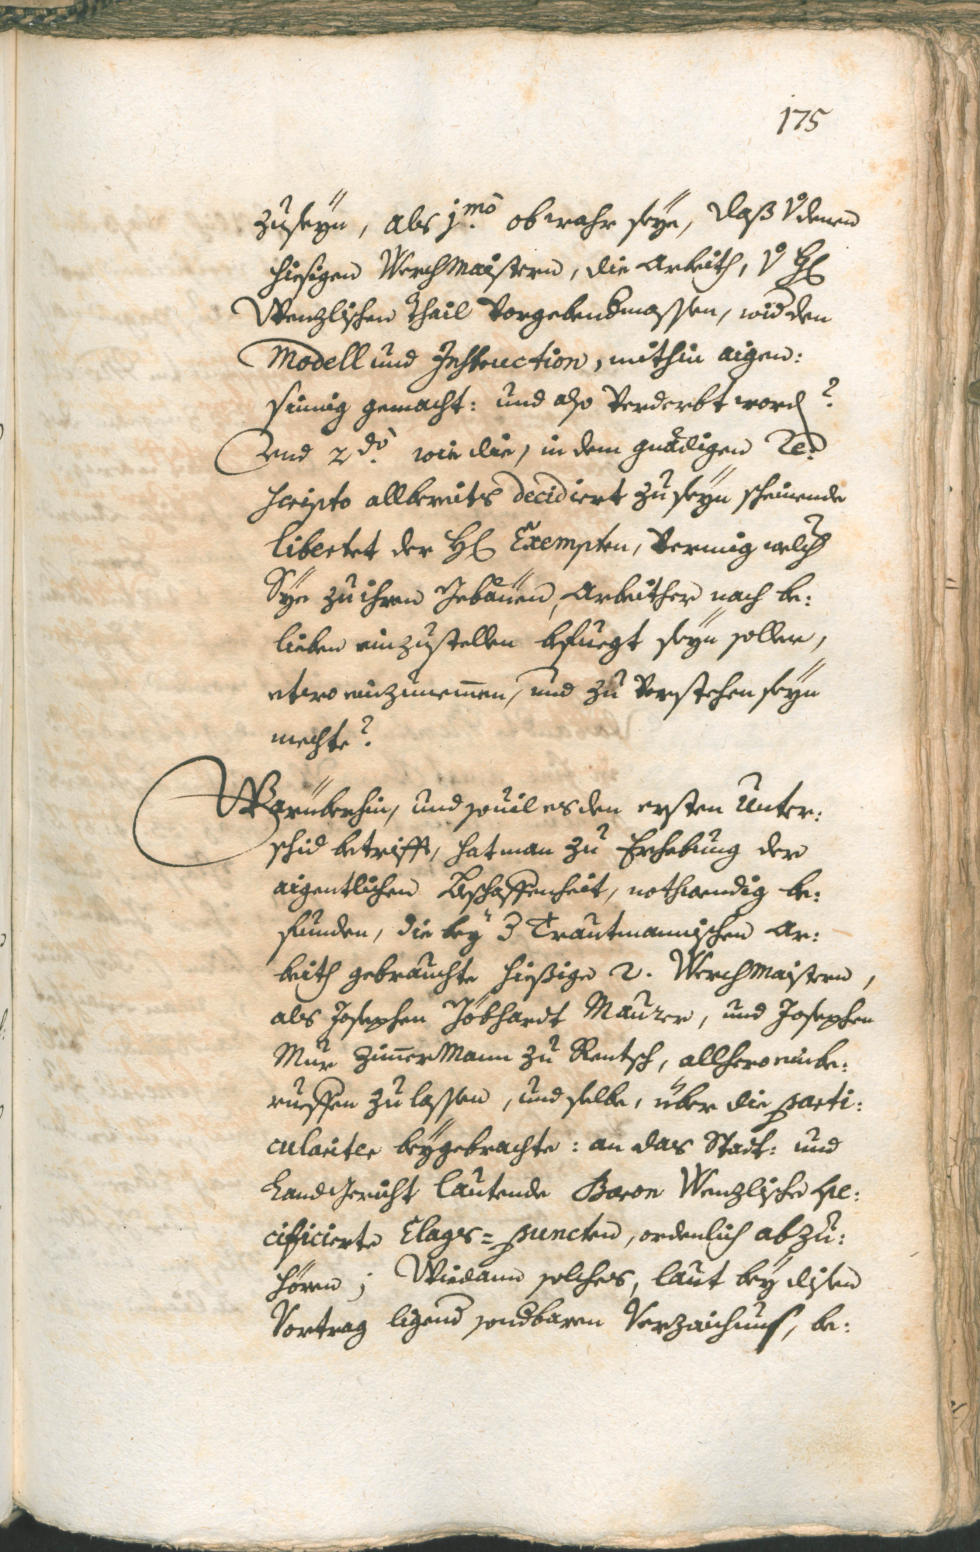 175
zuseÿn, als 1.mo ob wahr seÿe, daß v denen
hiesigen WerchMaistern, die Arbeith, v H
Wenzlischen Thail Vorgebendmassen, wid den
Modell und Instruction, mithin aigen:
sinnig gemacht: und also Verderbt word?
Und 2.do wie die, in dem gnädigen Re-
scripto allbereits decidiert zu seÿn scheinende
libertet der H Exempten, Vermüg welch
Sÿe zu ihren Gebäuen, Arbeither nach be:
lieben einzustellen befuegt seÿn sollen,
etwo einzunemen, und zu Verstehen seÿn
mechte?
Warüberhin, und souil es den ersten Unter:
schid betrifft, hat man zu Erhebung der
aigentlichen Beschaffenheit, nothwendig be:
funden, die beÿ Trautmannischen Ar:
beith gebrauchte hießige 2. WerchMaistern,
als Josephen Jobhardt Maurer, und Josephen
Mur ZimerMann zu Rentsch, allhero einbe:
rueffen zu lassen, und selbe, über die parti:
culariter beÿgebrachte: an das Stadt: und
LandGericht lautende Baron Wenzlische spe:
cificierte Clags=puncten, ordenlich abzu:
hören; Wiedann solches, laut beÿ disen
Vortrag ligend sondbaren Verzaichnus, be: